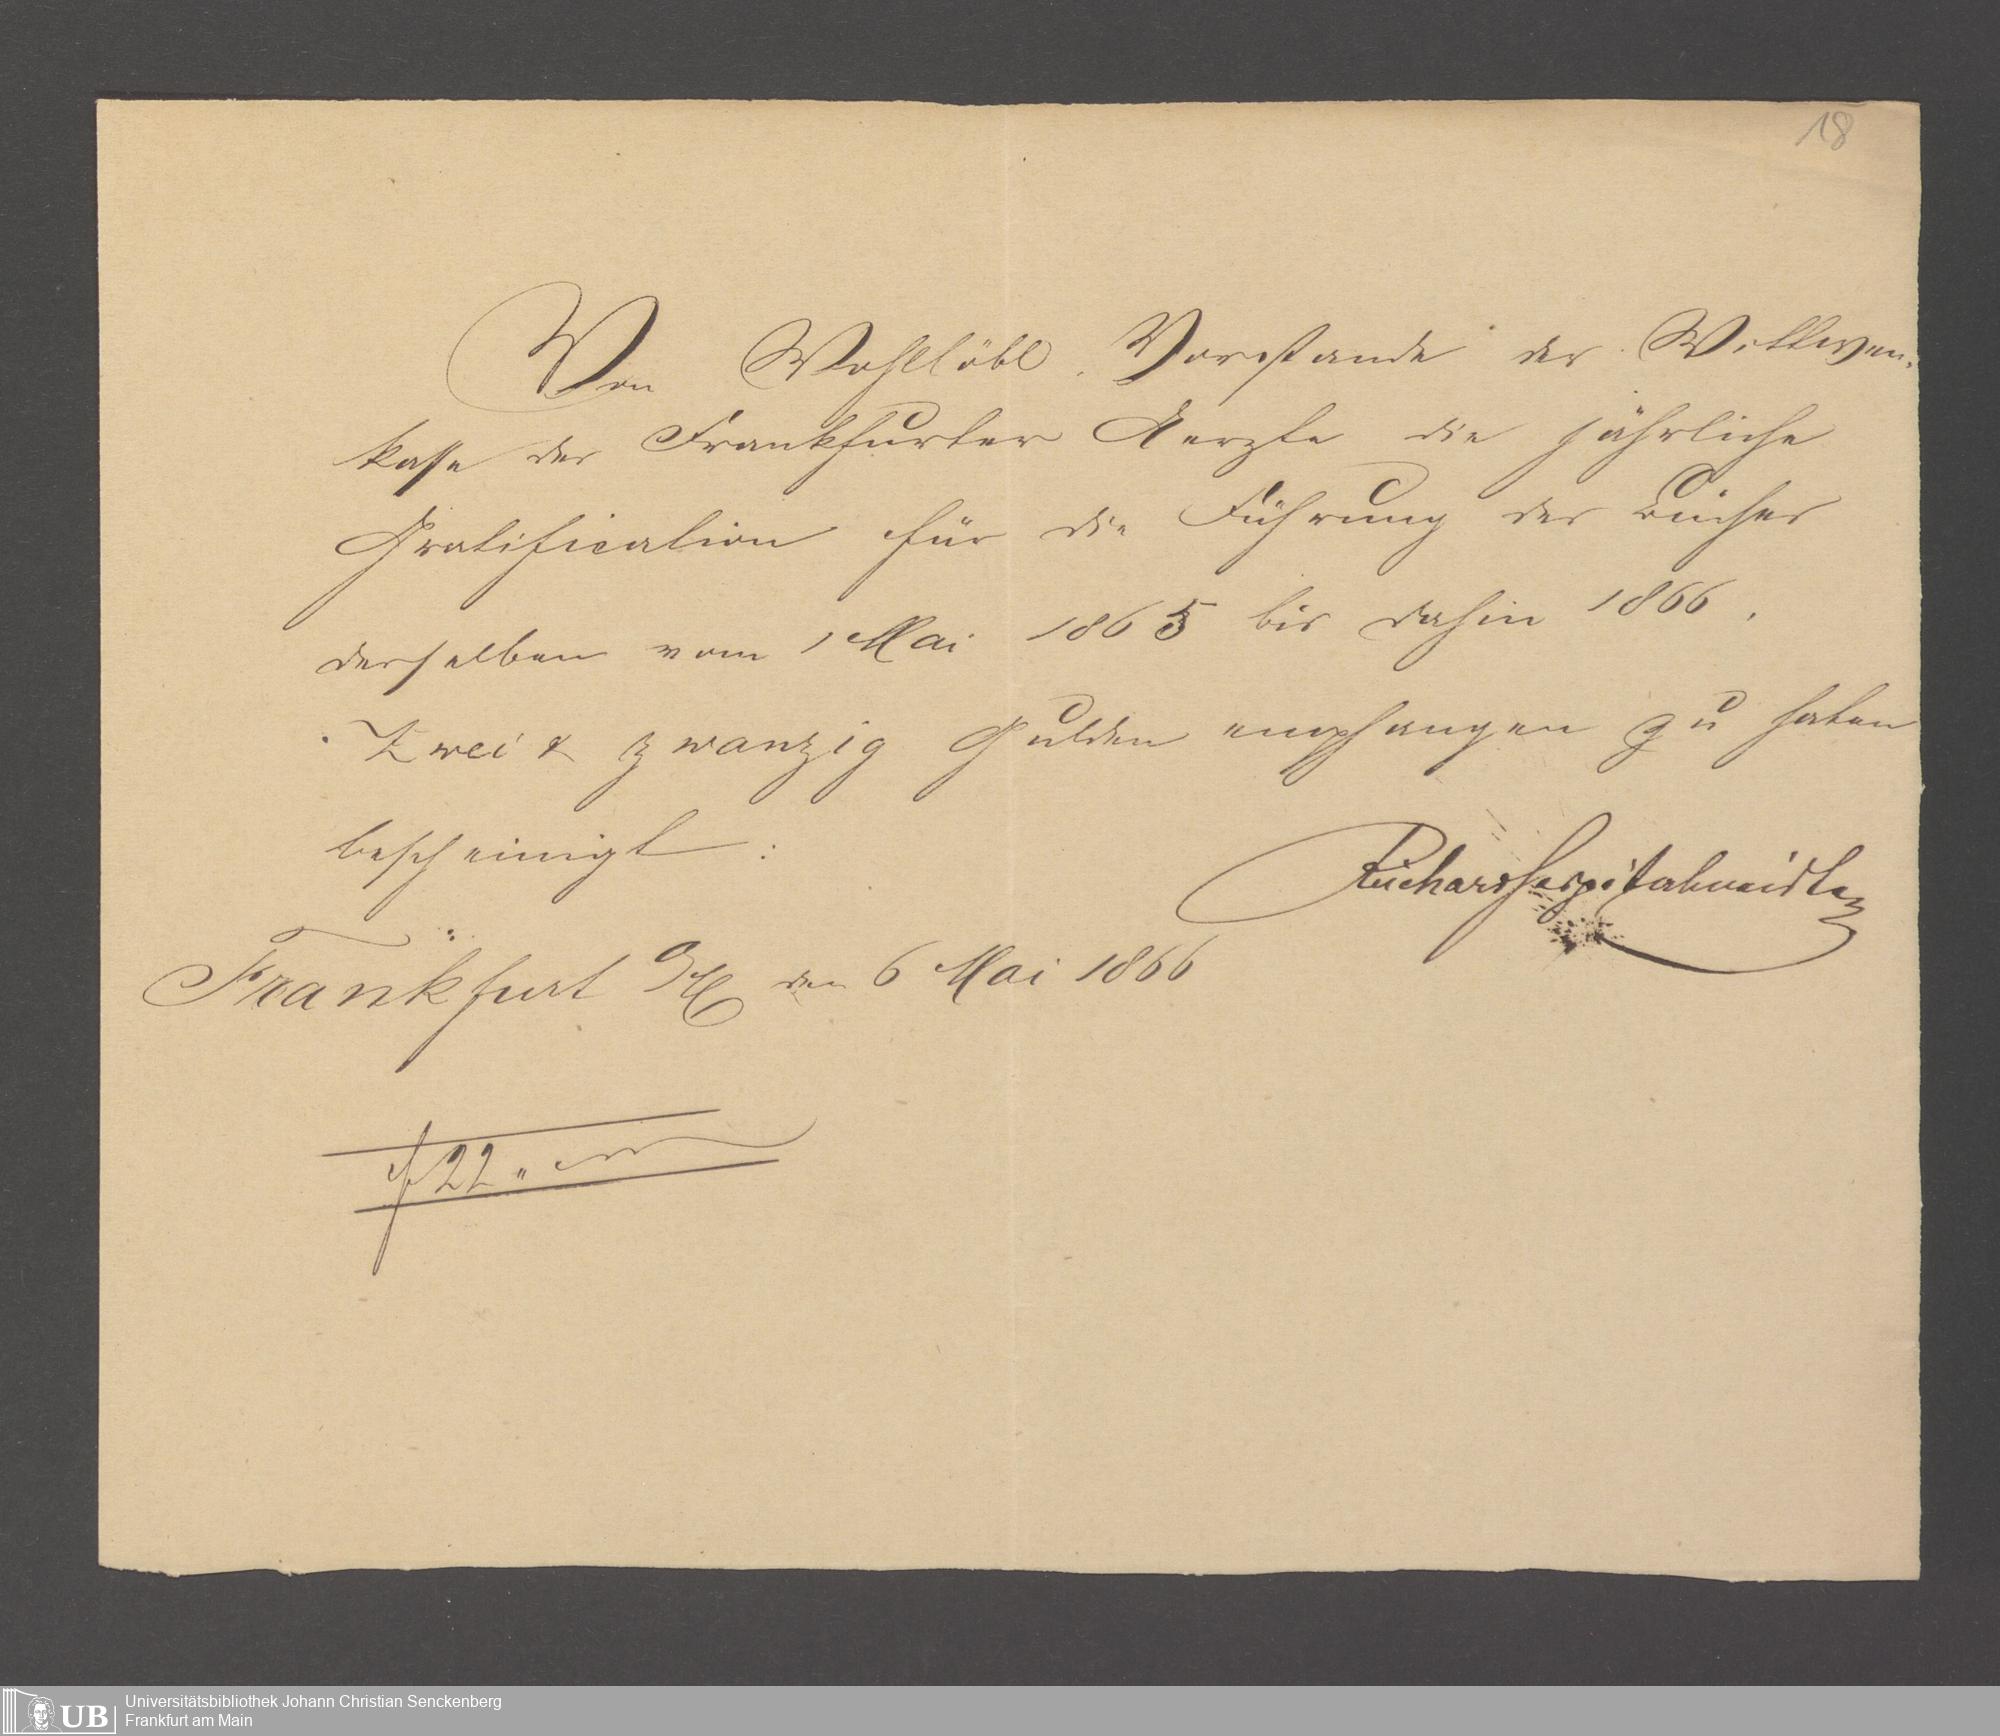 18
Von Wohllöbl. Vorstande der Wittwen-
kasse der Frankfurter Aerzte die jährliche
Gratification für die Führung der Bücher
derselben vom 1 Mai 1865 bis dahin 1866.
Zwei & zwanzig Gulden empfangen zu haben
bescheinigt:
Hospitalmeister
Frankfurt a/M den 6 Mai 1866
f 22 "
UB Universitätsbibliothek Johann Christian Senckenberg
Frankfurt am Main